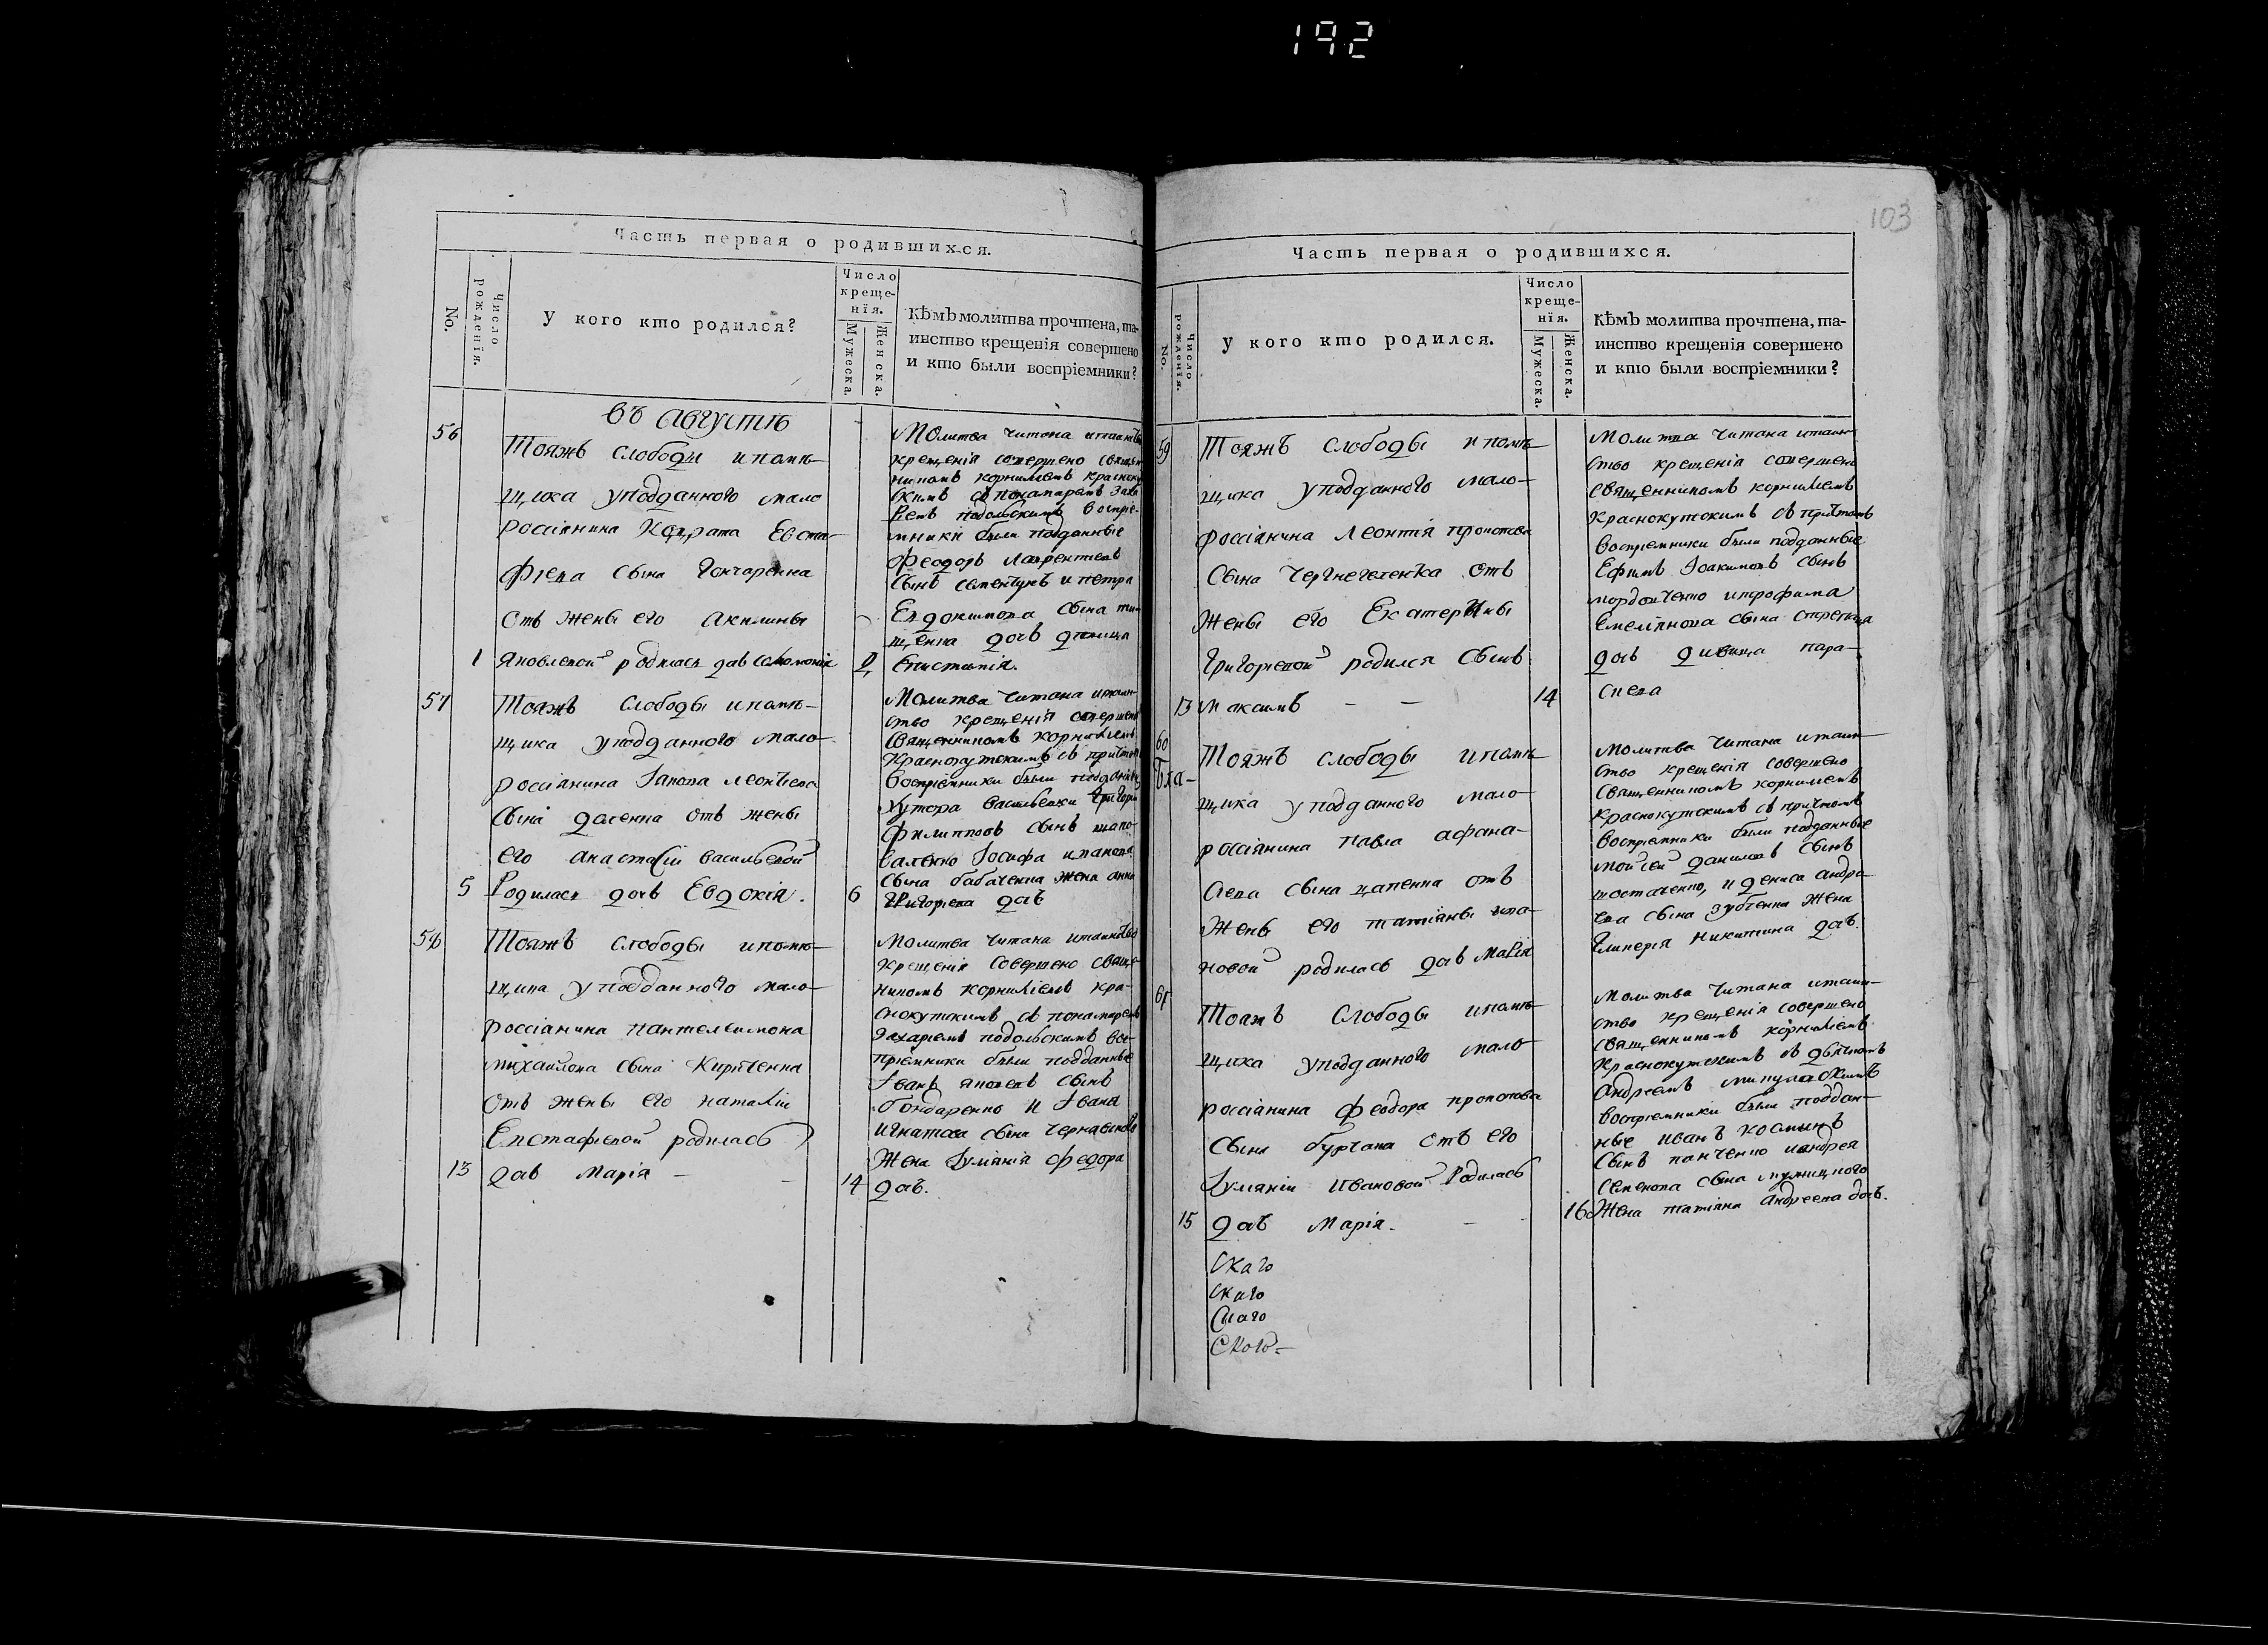 192
103
Часть первая о родившихся.
No.
Число рожденїя.
У кого кто родился?
Число
креще-
нїя.
Мужеска.
Женска.
Кѣмъ молитва прочтена, та-
инство крещенїя совершено
и кто были воспрїемники?
Въ Августѣ
56
Тояжъ слободы и помѣ-
щика у подданного мало
россіянина Кодрата Евста-
фіева сына Гончаренка
отъ жены его Акилины
1 Яковлевой родилась дчь Соломонія
2
Молитва читана и таинство
крещенія совершено священ
никомъ Корниліемъ Красноку
скимъ съ понамаремъ Заха
ріемъ Подольскимъ воспріе-
мники были подданные
Феодоръ Лаврентіевъ
сынъ и Петра
Евдокимова сына
дчь дѣвица
Епистимія.
57
Тояжъ слободы и помѣ-
щика у подданного мало-
россіянина Іакова Леонтіева
сына отъ жены
его Анастасіи Васильевой
5 Родилась дчь Евдокія.
6
Молитва читана и таин-
ство крещенія совершено
священникомъ Корниліемъ
Краснокутскимъ съ причтомъ
воспріемники были подданные
хутора Васильевки Григорій
Филипповъ сынъ Шапо-
валенко Іосифа Иванова
сына Бабаченка жена Анна
Григорьева дчь
58
Тояжъ слободы и помѣ-
щика у подданного мало-
россіянина Пантелеимона
Михайлова сына Киріченка
отъ жены его Наталіи
Евстафіевой родилась
13 дчь Марія - -
14
Молитва читана и таинство
крещенія совершено свяще-
никомъ Корниліемъ Кра-
снокутскимъ съ понамаремъ
Захаріемъ Подольскимъ вос-
пріемники были подданные
Іванъ Яковлевъ сынъ
Бондаренко и Івана
Игнатова сына
жена Домнікія Федора
дчь.
Часть первая о родившихся.
No.
Число рожденїя.
У кого кто родился.
Число
креще-
нїя.
Мужеска.
Женска.
Кѣмъ молитва прочтена, та-
инство крещенїя совершено
и кто были воспрїемники?
59
Тояжъ слободы и помѣ
щика у подданного мало-
россіянина Леонтія Прокопова
сына отъ
жены его Екатерины
Григорьевой родился сынъ
13 Максимъ - -
14
Молитва читана и таин-
ство крещенія совершено
священникомъ Корниліемъ
Краснокутскимъ съ причтомъ
воспріемники были подданные
Ефимъ Іоакимовъ сынъ
и Трофима
Емеліянова сына
дчь дѣвица Пара-
скева
60
Тояжъ слободы и помѣ
щика у подданного мало
россіянина Павла Афана-
сіева сына Цапенка отъ
жены его Татіаны Ива-
новой родилась дчь Марія
Молитва читана и таин-
ство крещенія совершено
священникомъ Корниліемъ
Краснокутскимъ съ причтомъ
воспріемники были подданные
Мойсей Даниловъ сынъ
Шостаченко, и Дениса Андре-
ева сына Зубченка жена
Гликерія Никитина дчь.
61
Тояжъ слободы и помѣ-
щика у подданного мало
россіянина Феодора Прокопова
сына отъ его
Домнікіи Ивановой родилась
15 дчь Марія. -
16
Молитва читана и таин-
ство крещенія совершено
священникомъ Корниліемъ
Краснокутскимъ съ дьячкомъ
Андреемъ
воспріемники были поддан-
ные Иванъ Косминъ
сынъ Панченко и Андрея
Семенова сына
жена Татіяна Андреева дчь.
скаго
скаго
скаго
ского-